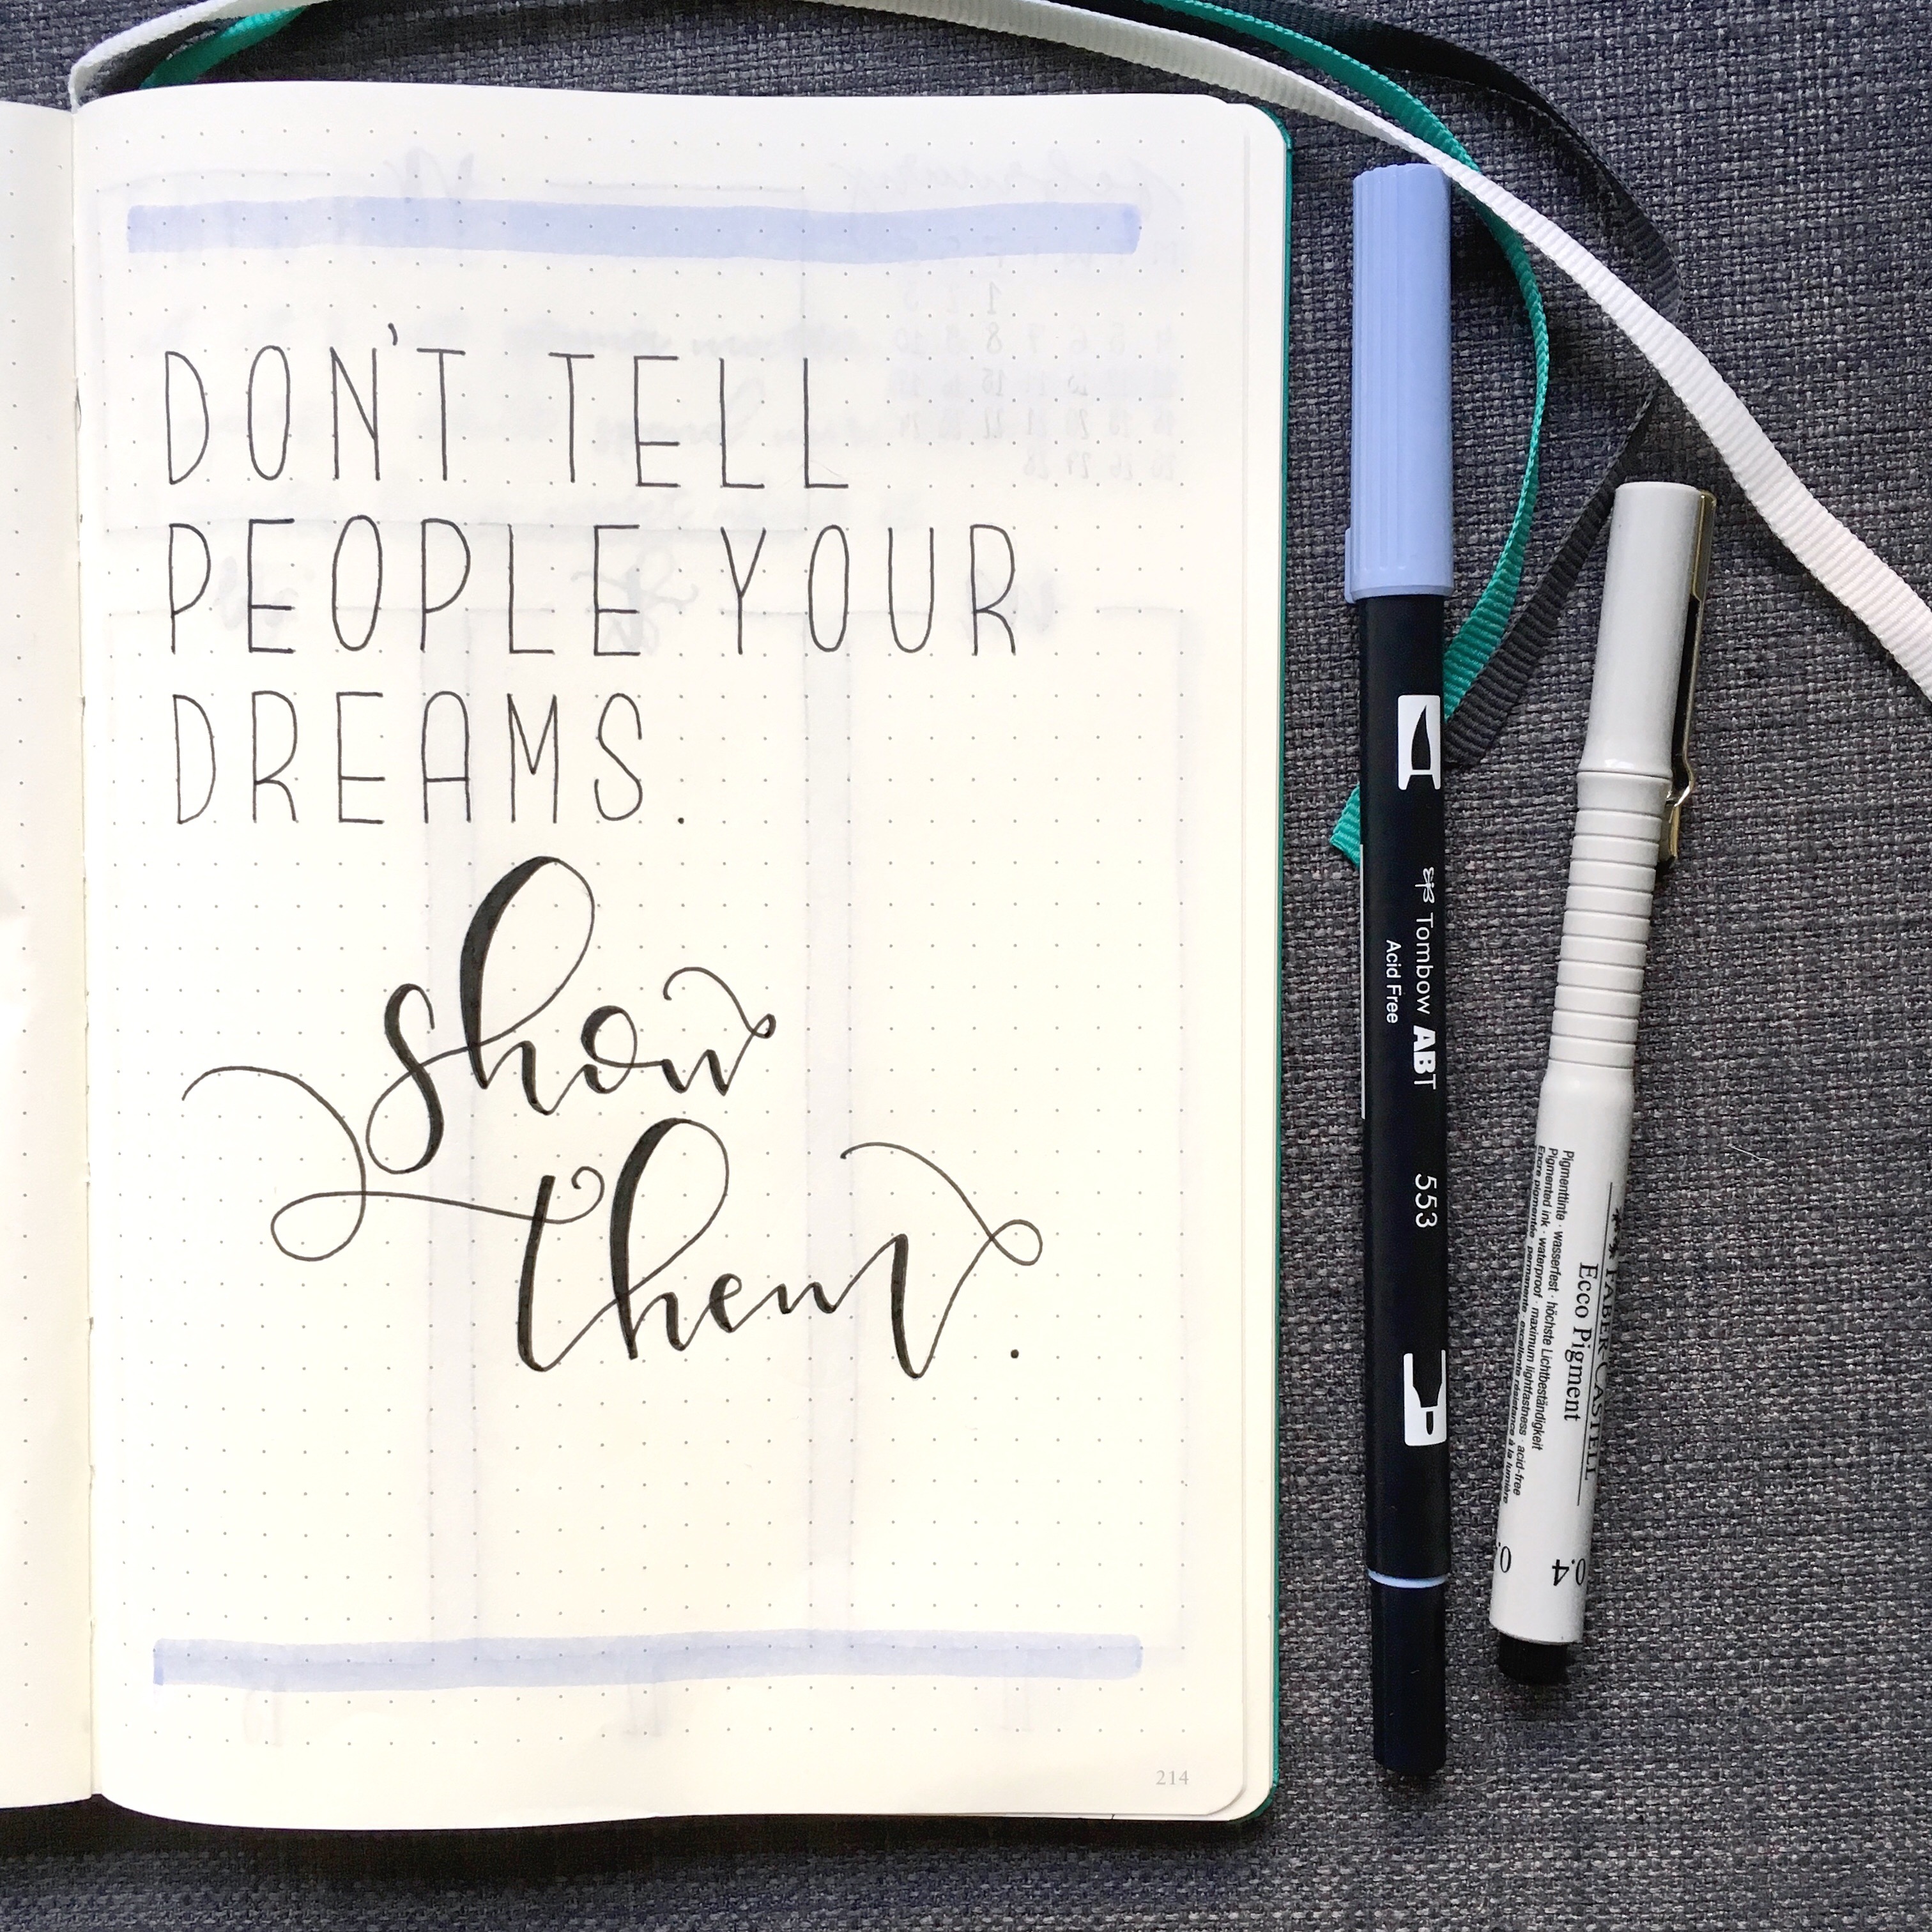 DON'T TELL
PEOPLE YOUR
DREAMS.
show
them.
214
Tombow ABT
Acid Free
553
FABER-CASTELL
Ecco Pigment
Pigmenttinte · wasserfest · höchste Lichtbeständigkeit
Pigmented ink · waterproof · maximum lightfastness · acid-free
Encre pigmentée · permanente · excellente résistance à la lumière
0.4